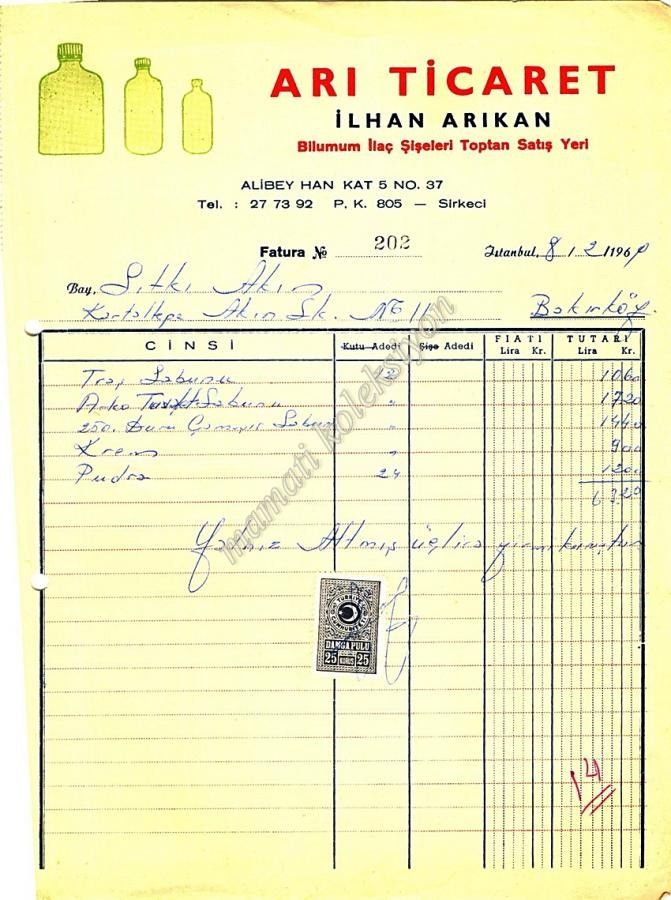 ARI TİCARET
İLHAN ARIKAN
Bilumum İlaç Şişeleri Toptan Satış Yeri
ALİBEY HAN KAT 5 NO. 37
Tel. : 27 73 92 P. K. 805 — Sirkeci
Fatura № 202 İstanbul, 8 / 2 / 1960
Bay, Sıtkı Akın
Kartaltepe Akın Sk. No 11 Bakırköy
CİNSİ Kutu Adedi Şişe Adedi FIATI Lira Kr. TUTARI Lira Kr.
Traş Sabunu 12 1060
Arko Sabunu " 1720
250. Duru Çamaşır Sabun " 1440
Krem " 900
Pudra 24 1200
63.20
Yalnız Altmış üç lira yirmi kuruştur
TÜRKİYE CUMHURİYETİ
DAMGA PULU
25 KURUŞ 25
14
mamati koleksiyon